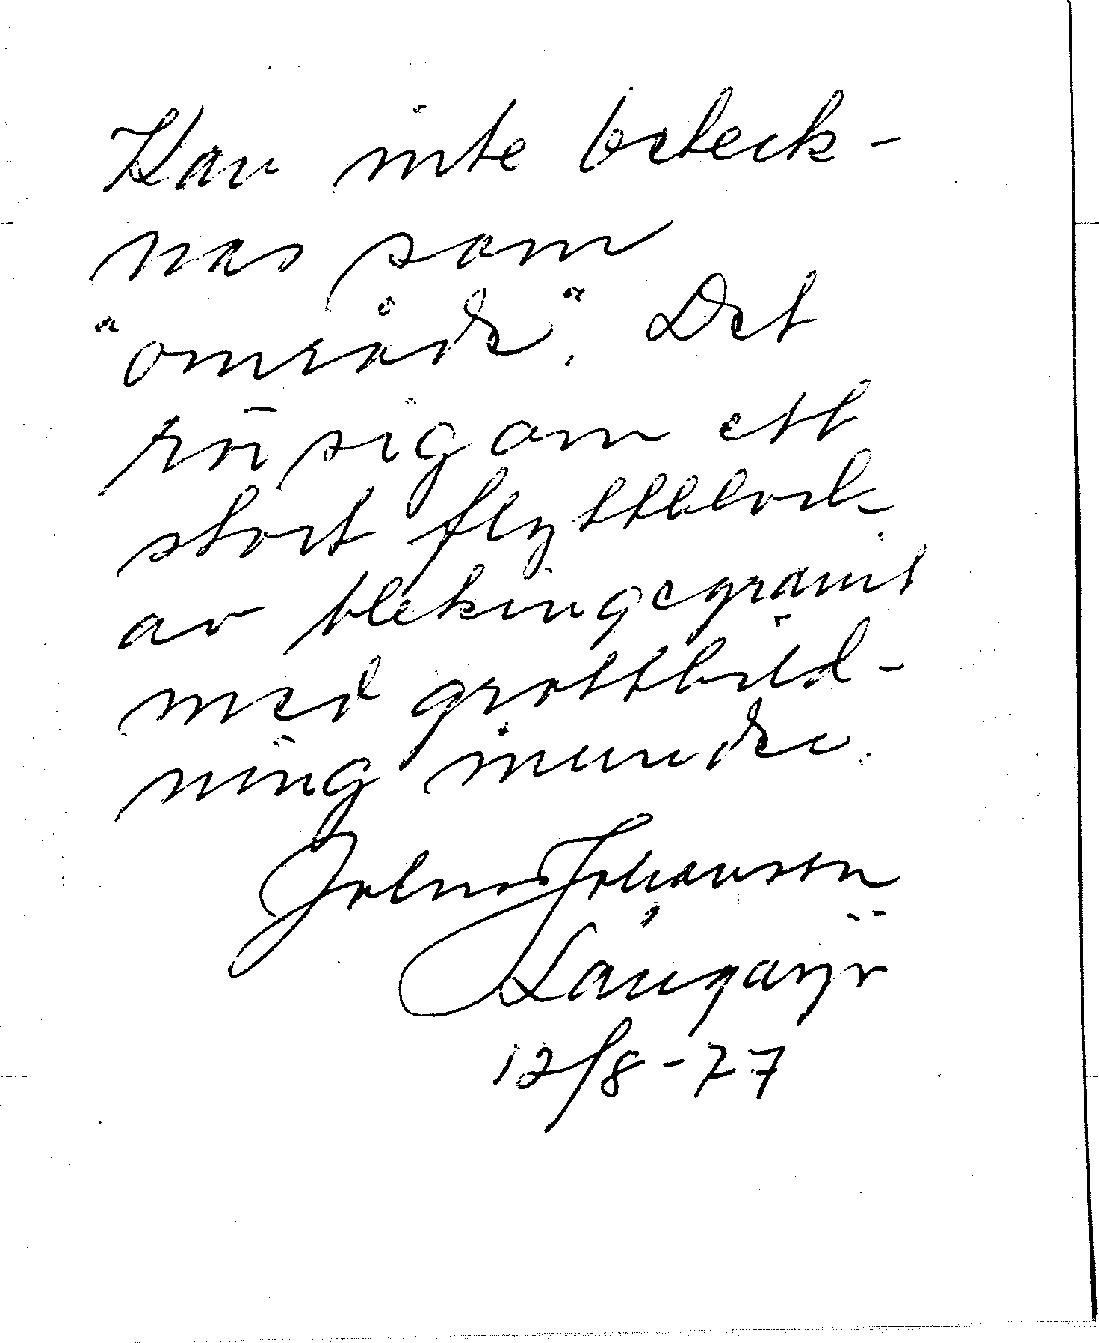 Kan inte beteck-
nas som
"område". Det
rör sig om ett
stort flyttblock
av blekingegranit
med grottbild-
ning inunder.
Johansson
12/8-77